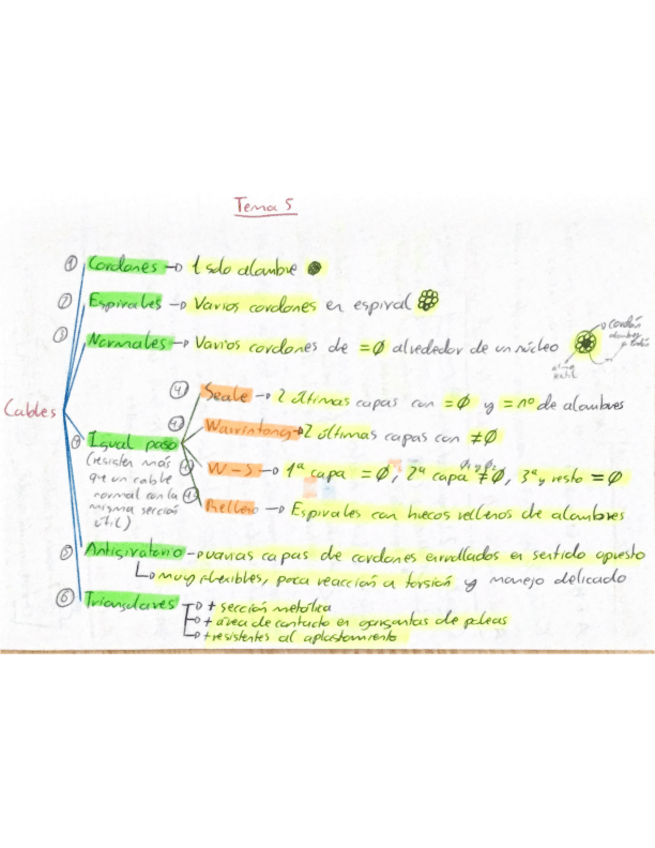 Tema 5
① Cordones → 1 solo alambre
② Espirales → Varios cordones en espiral
③ Normales → Varios cordones de =Ø alrededor de un núcleo
cordón
alma
textil
Cables
④ Igual paso
(resisten más
que un cable
normal con la
misma sección
útil)
Seale → 2 últimas capas con =Ø y = nº de alambres
Warrintong → 2 últimas capas con ≠Ø
W-S → 1ª capa =Ø, 2ª capa ≠Ø, 3ª y resto =Ø
Ø1 y Ø2
Relleno → Espirales con huecos rellenos de alambres
⑤ Antigiratorio → varias capas de cordones enrollados en sentido opuesto
↳ muy flexibles, poca reacción a torsión y manejo delicado
⑥ Triangulares → + sección metálica
→ + área de contacto en gargantas de poleas
→ + resistentes al aplastamiento